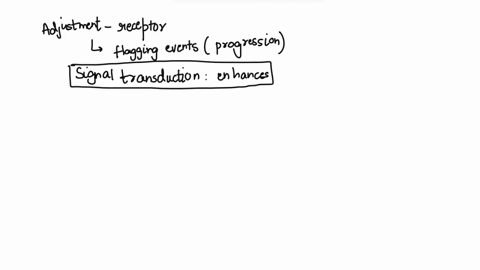 Adjustment - receptor
↳ flagging events ( progression)
Signal transduction : enhances